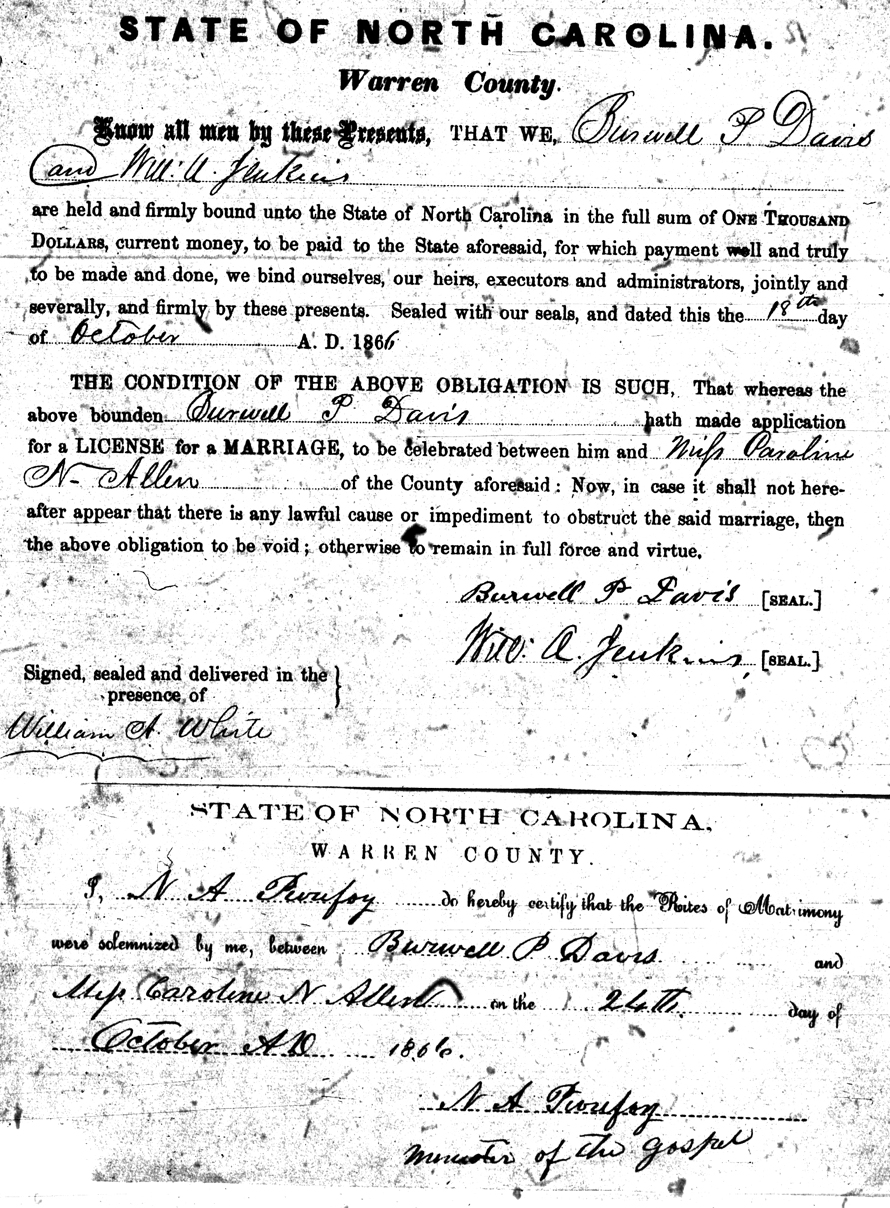 STATE OF NORTH CAROLINA.
Warren County.
Know all men by these Presents, THAT WE, Burwell P Davis
and Will: A Jenkins
are held and firmly bound unto the State of North Carolina in the full sum of ONE THOUSAND
DOLLARS, current money, to be paid to the State aforesaid, for which payment well and truly
to be made and done, we bind ourselves, our heirs, executors and administrators, jointly and
severally, and firmly by these presents. Sealed with our seals, and dated this the 18th day
of October A. D. 1866
THE CONDITION OF THE ABOVE OBLIGATION IS SUCH, That whereas the
above bounden Burwell P Davis hath made application
for a LICENSE for a MARRIAGE, to be celebrated between him and Miss Caroline
N. Allen of the County aforesaid: Now, in case it shall not here-
after appear that there is any lawful cause or impediment to obstruct the said marriage, then
the above obligation to be void; otherwise to remain in full force and virtue.
Burwell P Davis [SEAL.]
Will: A. Jenkins, [SEAL.]
Signed, sealed and delivered in the
presence of
William A. White
STATE OF NORTH CAROLINA,
WARREN COUNTY.
I, N A Purefoy do hereby certify that the Rites of Matrimony
were solemnized by me, between Burwell P Davis and
Miss Caroline N Allen on the 24th. day of
October AD 1866.
N A Purefoy
Minister of the Gospel